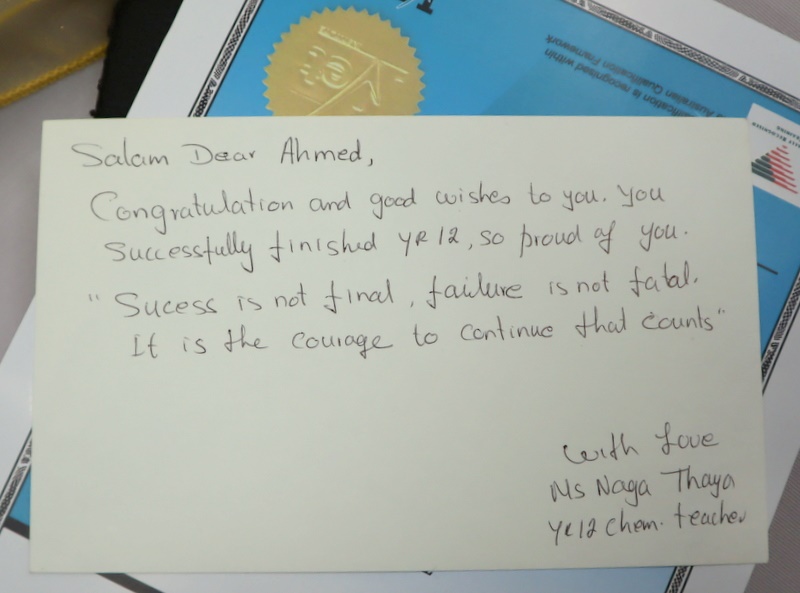 Salam Dear Ahmed,
Congratulation and good wishes to you. You
Successfully finished YR 12, so proud of you.
"Sucess is not final, failure is not fatal.
It is the courage to continue that counts"
with Love
Ms Naga Thaya
YR 12 Chem. teacher
ification is recognised within
Australian Qualification Framework